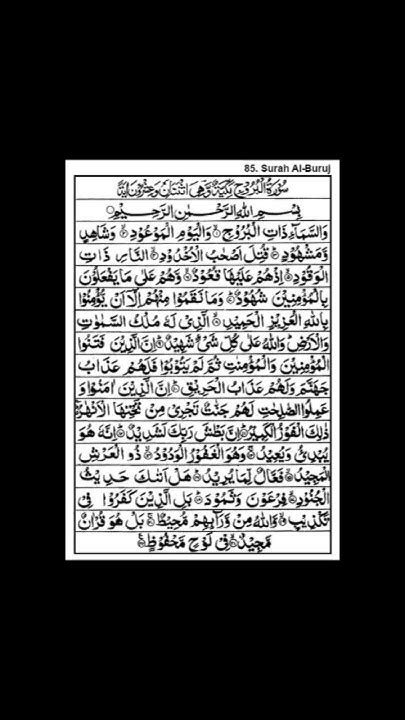 85. Surah Al-Buruj
سُوْرَةُ الْبُرُوْجِ مَكِّيَّةٌ وَّهِىَ اثْنَتَانِ وَعِشْرُوْنَ اٰيَةً
بِسْمِ اللهِ الرَّحْمٰنِ الرَّحِيْمِ
وَالسَّمَآءِ ذَاتِ الْبُرُوْجِ۝ وَالْيَوْمِ الْمَوْعُوْدِ۝ وَشَاهِدٍ
وَّمَشْهُوْدٍ۝ قُتِلَ اَصْحٰبُ الْاُخْدُوْدِ۝ النَّارِ ذَاتِ
الْوَقُوْدِ۝ اِذْ هُمْ عَلَيْهَا قُعُوْدٌ۝ وَّهُمْ عَلٰى مَا يَفْعَلُوْنَ
بِالْمُؤْمِنِيْنَ شُهُوْدٌ۝ وَمَا نَقَمُوْا مِنْهُمْ اِلَّآ اَنْ يُّؤْمِنُوْا
بِاللهِ الْعَزِيْزِ الْحَمِيْدِ۝ الَّذِىْ لَهٗ مُلْكُ السَّمٰوٰتِ
وَالْاَرْضِ وَاللهُ عَلٰى كُلِّ شَىْءٍ شَهِيْدٌ۝ اِنَّ الَّذِيْنَ فَتَنُوا
الْمُؤْمِنِيْنَ وَالْمُؤْمِنٰتِ ثُمَّ لَمْ يَتُوْبُوْا فَلَهُمْ عَذَابُ
جَهَنَّمَ وَلَهُمْ عَذَابُ الْحَرِيْقِ۝ اِنَّ الَّذِيْنَ اٰمَنُوْا وَ
عَمِلُوا الصّٰلِحٰتِ لَهُمْ جَنّٰتٌ تَجْرِىْ مِنْ تَحْتِهَا الْاَنْهٰرُ
ذٰلِكَ الْفَوْزُ الْكَبِيْرُ۝ اِنَّ بَطْشَ رَبِّكَ لَشَدِيْدٌ۝ اِنَّهٗ هُوَ
يُبْدِئُ وَيُعِيْدُ۝ وَهُوَ الْغَفُوْرُ الْوَدُوْدُ۝ ذُو الْعَرْشِ
الْمَجِيْدُ۝ فَعَّالٌ لِّمَا يُرِيْدُ۝ هَلْ اَتٰىكَ حَدِيْثُ
الْجُنُوْدِ۝ فِرْعَوْنَ وَثَمُوْدَ۝ بَلِ الَّذِيْنَ كَفَرُوْا فِىْ
تَكْذِيْبٍ۝ وَّاللهُ مِنْ وَّرَآئِهِمْ مُّحِيْطٌ۝ بَلْ هُوَ قُرْاٰنٌ
مَّجِيْدٌ۝ فِىْ لَوْحٍ مَّحْفُوْظٍ۝